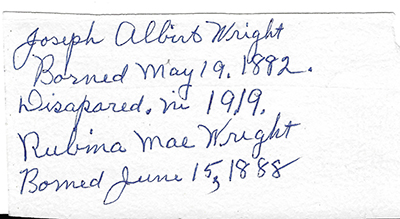 Joseph Albert Wright
Borned May 19, 1882.
Disapared. in 1919.
Rubina Mae Wright
Borned June 15, 1888